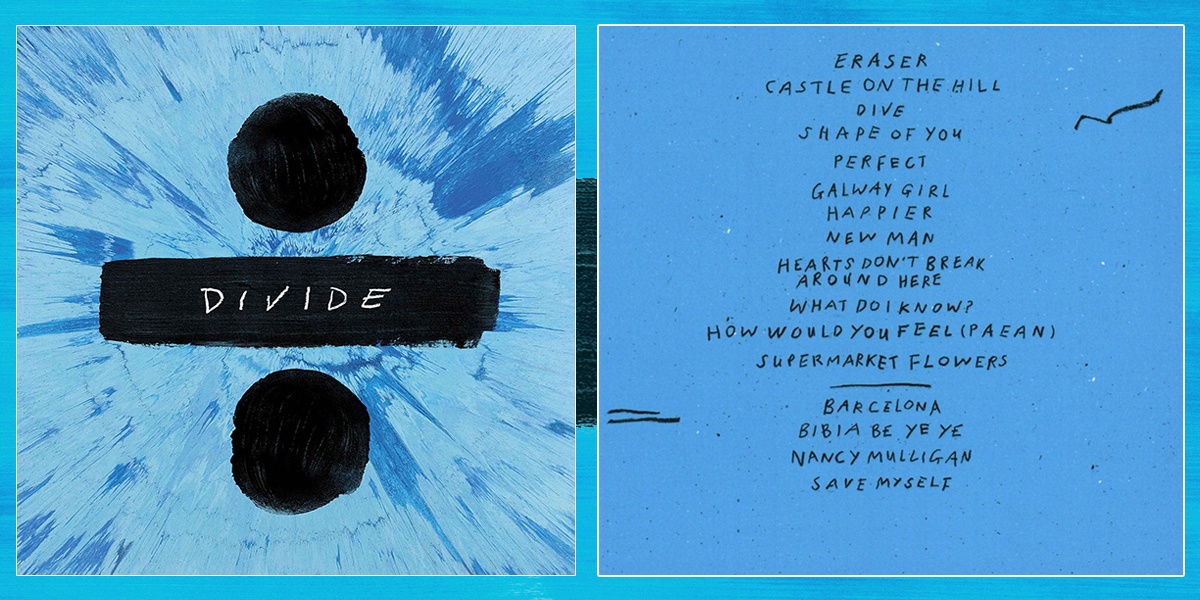 DIVIDE
ERASER
CASTLE ON THE HILL
DIVE
SHAPE OF YOU
PERFECT
GALWAY GIRL
HAPPIER
NEW MAN
HEARTS DON'T BREAK
AROUND HERE
WHAT DO I KNOW?
HOW WOULD YOU FEEL (PAEAN)
SUPERMARKET FLOWERS
BARCELONA
BIBIA BE YE YE
NANCY MULLIGAN
SAVE MYSELF